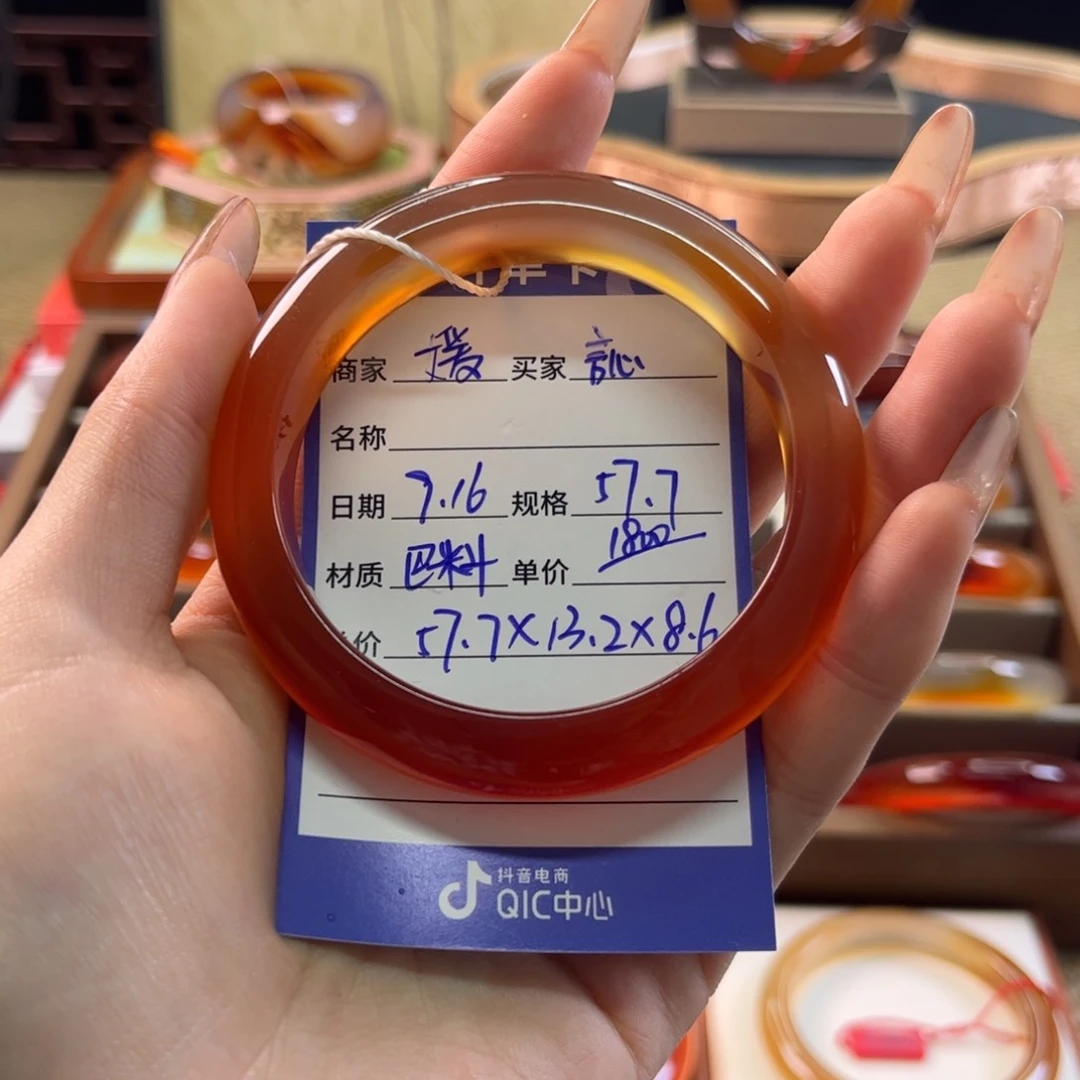 商家 媛 买家 言心
名称
日期 7.16 规格 57.7
材质 巴料 单价 1800
价 57.7×13.2×8.6
抖音电商
QIC中心